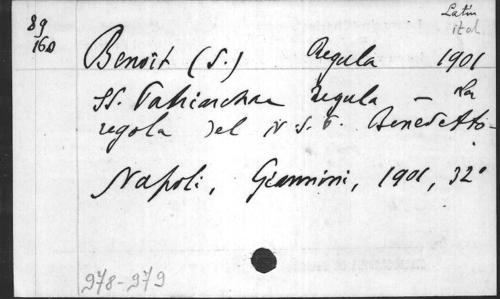 89
160
Latin
ital.
Benoît (S.) Regula 1901
SS. Patriarchae regula – La
regola del N. S. P. Benedetto.
Napoli, Giannini, 1901, 32°
978-979